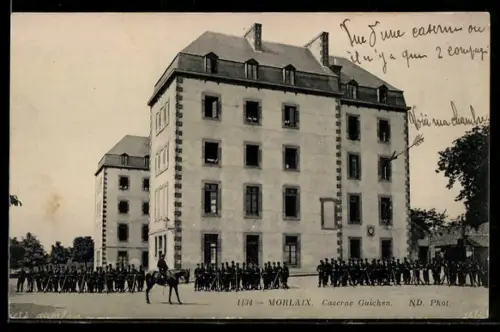 Vue d'une caserne ou
il n'y a que 2 compag
Voici ma chambre
1134 - MORLAIX. Caserne Guichen. ND. Phot.